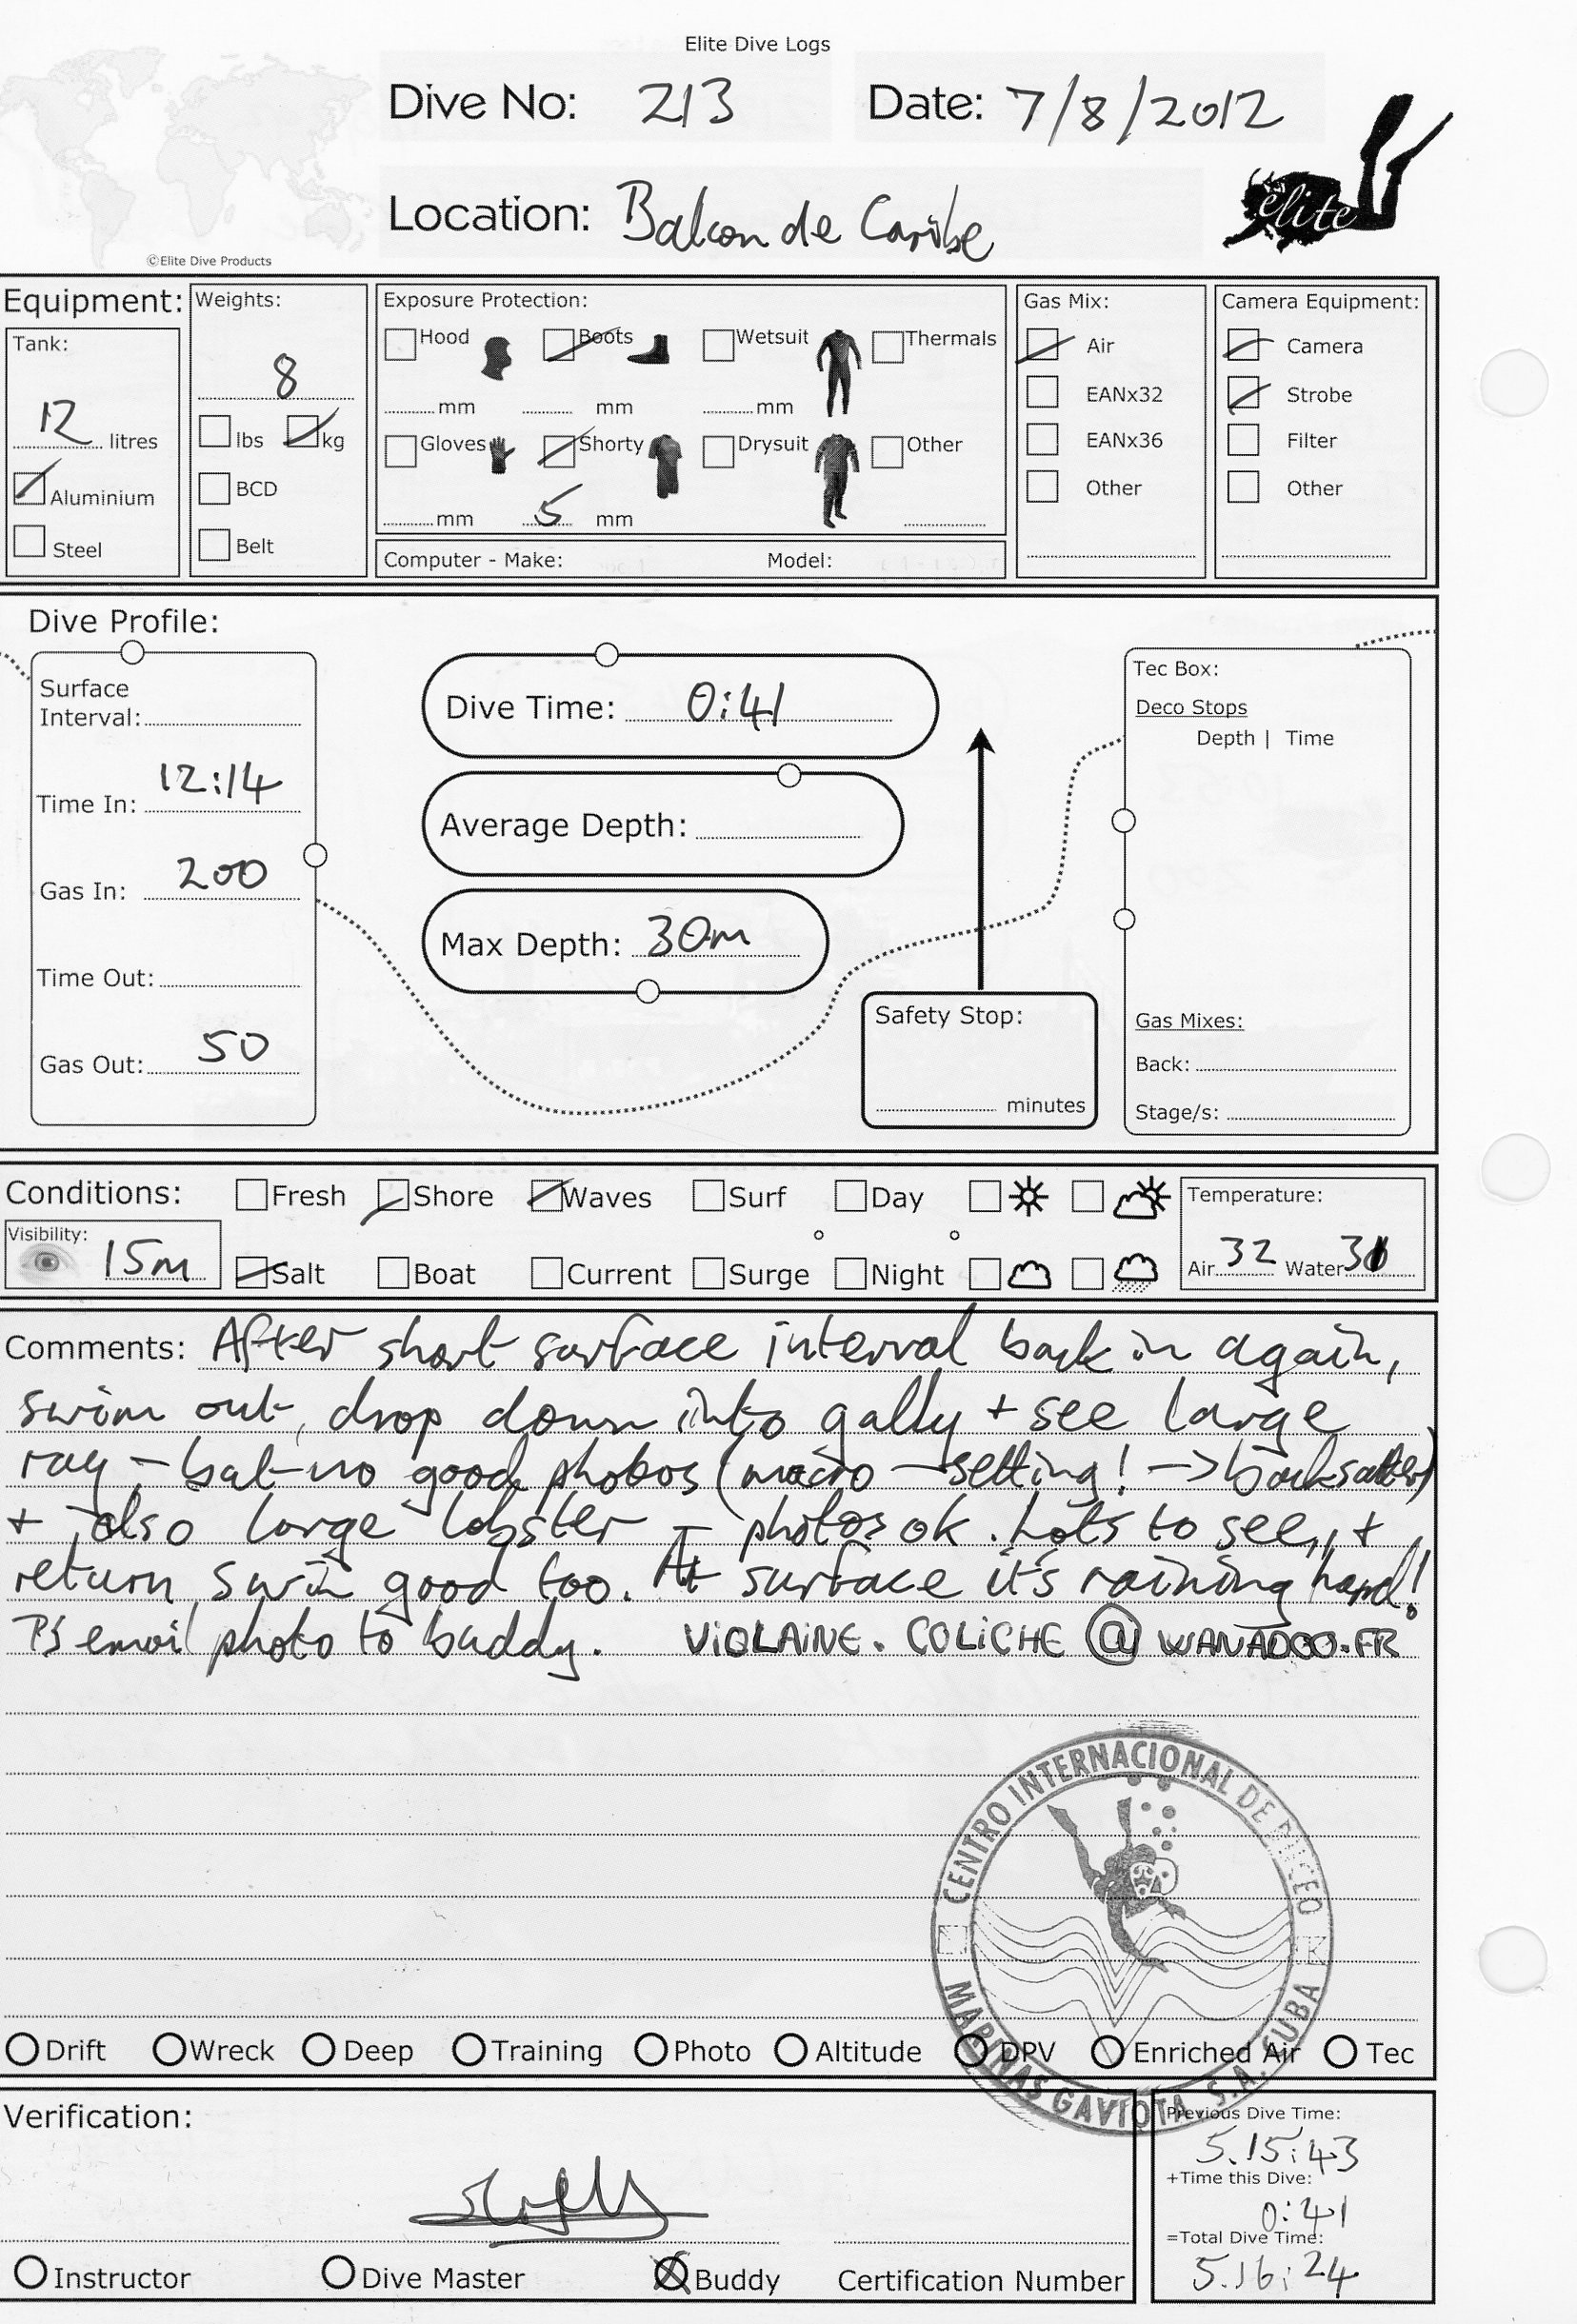 Elite Dive Logs
Dive No: 213 Date: 7/8/2012
Location: Balcon de Caribe
elite
©Elite Dive Products
Equipment: Weights: Exposure Protection: Gas Mix: Camera Equipment:
Tank: Hood Boots Wetsuit Thermals Air Camera
8
mm mm mm EANx32 Strobe
12 litres lbs kg Gloves Shorty Drysuit Other EANx36 Filter
Aluminium BCD Other Other
mm 5 mm
Steel Belt Computer - Make: Model:
Dive Profile:
Surface
Interval:
Time In: 12:14
Gas In: 200
Time Out:
Gas Out: 50
Dive Time: 0:41
Average Depth:
Max Depth: 30m
Safety Stop:
minutes
Tec Box:
Deco Stops
Depth | Time
Gas Mixes:
Back:
Stage/s:
Conditions: Fresh Shore Waves Surf Day Temperature:
Visibility: 15m Salt Boat Current Surge Night Air 32 Water
Comments: After short surface interval back in again,
swim out, drop down into gally + see large
ray - but no good photos (macro setting! -> backscatter)
+ also large lobster - photos ok. Lots to see, +
return swim good too. At surface it's raining hard!
PS email photo to buddy. ViOLAiNE.COLiCHE@WANADOO.FR
CENTRO INTERNACIONAL DE BUCEO
MARINAS GAVIOTA. S.A. CUBA
Drift Wreck Deep Training Photo Altitude DPV Enriched Air Tec
Verification:
Instructor Dive Master Buddy Certification Number
Previous Dive Time:
5.15:43
+Time this Dive:
0:41
=Total Dive Time:
5.16:24